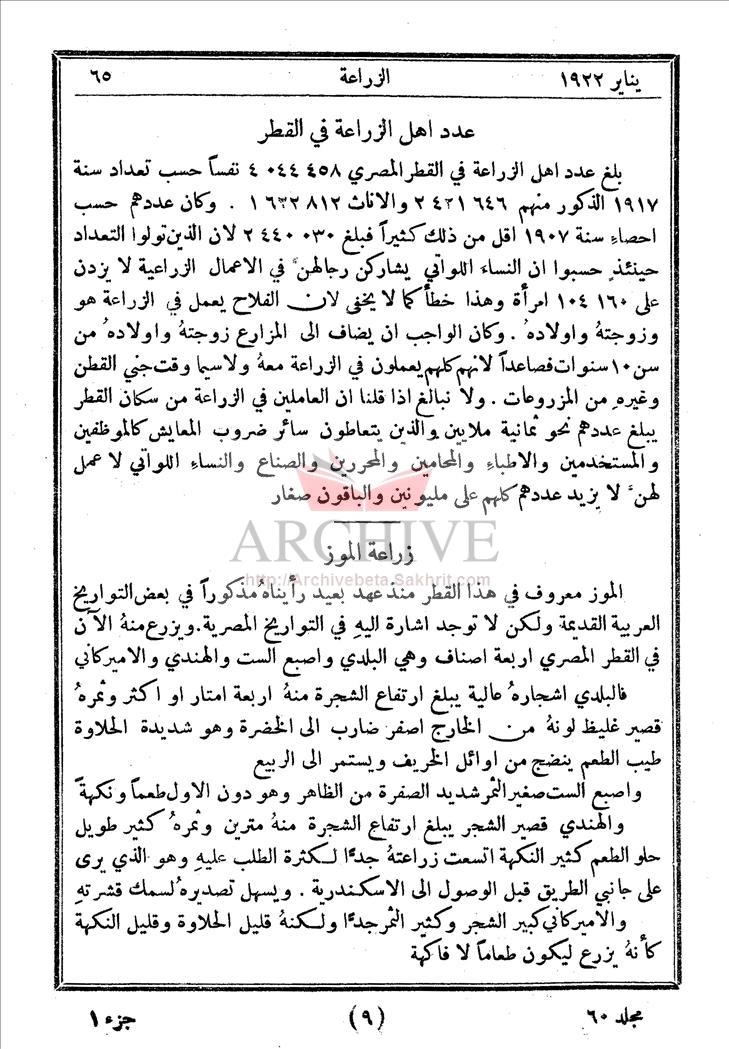 يناير ١٩٢٢ الزراعة ٦٥
عدد اهل الزراعة في القطر
بلغ عدد اهل الزراعة في القطر المصري ٤٥٨ ٠٤٤ ٤ نفساً حسب تعداد سنة
١٩١٧ الذكور منهم ٦٤٦ ٤٣١ ٢ والاناث ٨١٢ ٦٣٢ ١ . وكان عددهم حسب
احصاء سنة ١٩٠٧ اقل من ذلك كثيراً فبلغ ٠٣٠ ٤٤٠ ٢ لان الذين تولوا التعداد
حينئذٍ حسبوا ان النساء اللواتي يشاركن رجالهنَّ في الاعمال الزراعية لا يزدن
على ١٦٠ ١٠٤ امرأة وهذا خطأ كما لا يخفى لان الفلاح يعمل في الزراعة هو
وزوجتهُ واولادهُ . وكان الواجب ان يضاف الى المزارع زوجتهُ واولادهُ من
سن ١٠ سنوات فصاعداً لانهم كلهم يعملون في الزراعة معهُ ولاسيما وقت جني القطن
وغيرهِ من المزروعات . ولا نبالغ اذا قلنا ان العاملين في الزراعة من سكان القطر
يبلغ عددهم نحو ثمانية ملايين والذين يتعاطون سائر ضروب المعايش كالموظفين
والمستخدمين والاطباء والمحامين والمحررين والصناع والنساء اللواتي لا عمل
لهنَّ لا يزيد عددهم كلهم على مليونين والباقون صغار
ARCHIVE
زراعة الموز
http://Archivebeta.Sakhrit.com
الموز معروف في هذا القطر منذ عهد بعيد رأيناهُ مذكوراً في بعض التواريخ
العربية القديمة ولكن لا توجد اشارة اليهِ في التواريخ المصرية . ويزرع منهُ الآن
في القطر المصري اربعة اصناف وهي البلدي واصبع الست والهندي والاميركاني
فالبلدي اشجارهُ عالية يبلغ ارتفاع الشجرة منهُ اربعة امتار او اكثر وثمرهُ
قصير غليظ لونهُ من الخارج اصفر ضارب الى الخضرة وهو شديدة الحلاوة
طيب الطعم ينضج من اوائل الخريف ويستمر الى الربيع
واصبع الست صغير الثمر شديد الصفرة من الظاهر وهو دون الاول طعماً ونكهةً
والهندي قصير الشجر يبلغ ارتفاع الشجرة منهُ مترين وثمرهُ كثير طويل
حلو الطعم كثير النكهة اتسعت زراعتهُ جدًّا لكثرة الطلب عليهِ وهو الذي يرى
على جانبي الطريق قبل الوصول الى الاسكندرية . ويسهل تصديرهُ لسمك قشرتهِ
والاميركاني كبير الشجر وكثير الثمر جدًّا ولكنهُ قليل الحلاوة وقليل النكهة
كأنهُ يزرع ليكون طعاماً لا فاكهة
مجلد ٦٠ (٩) جزء ١